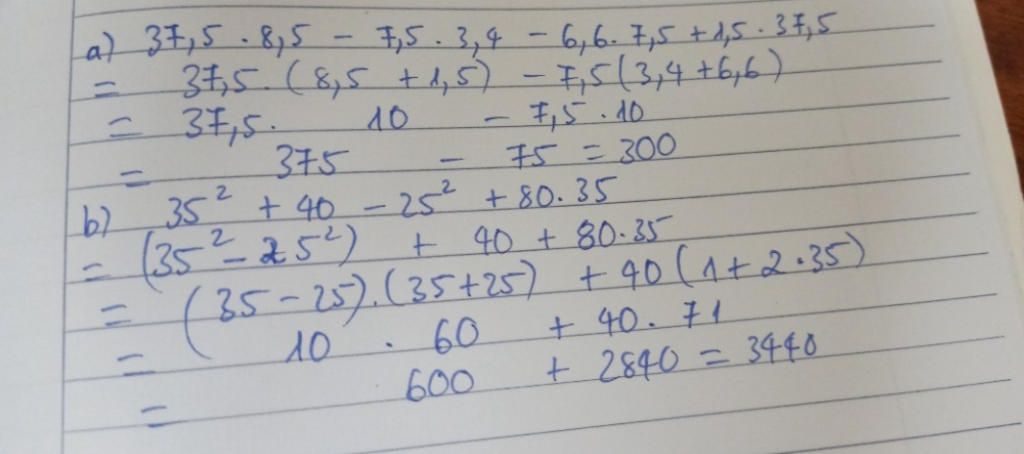 a) 37,5 . 8,5 - 7,5 . 3,4 - 6,6 . 7,5 + 1,5 . 37,5
= 37,5 . (8,5 + 1,5) - 7,5 (3,4 + 6,6)
= 37,5 . 10 - 7,5 . 10
= 375 - 75 = 300
b) 35² + 40 - 25² + 80 . 35
= (35² - 25²) + 40 + 80 . 35
= (35 - 25) . (35 + 25) + 40 (1 + 2 . 35)
= 10 . 60 + 40 . 71
= 600 + 2840 = 3440